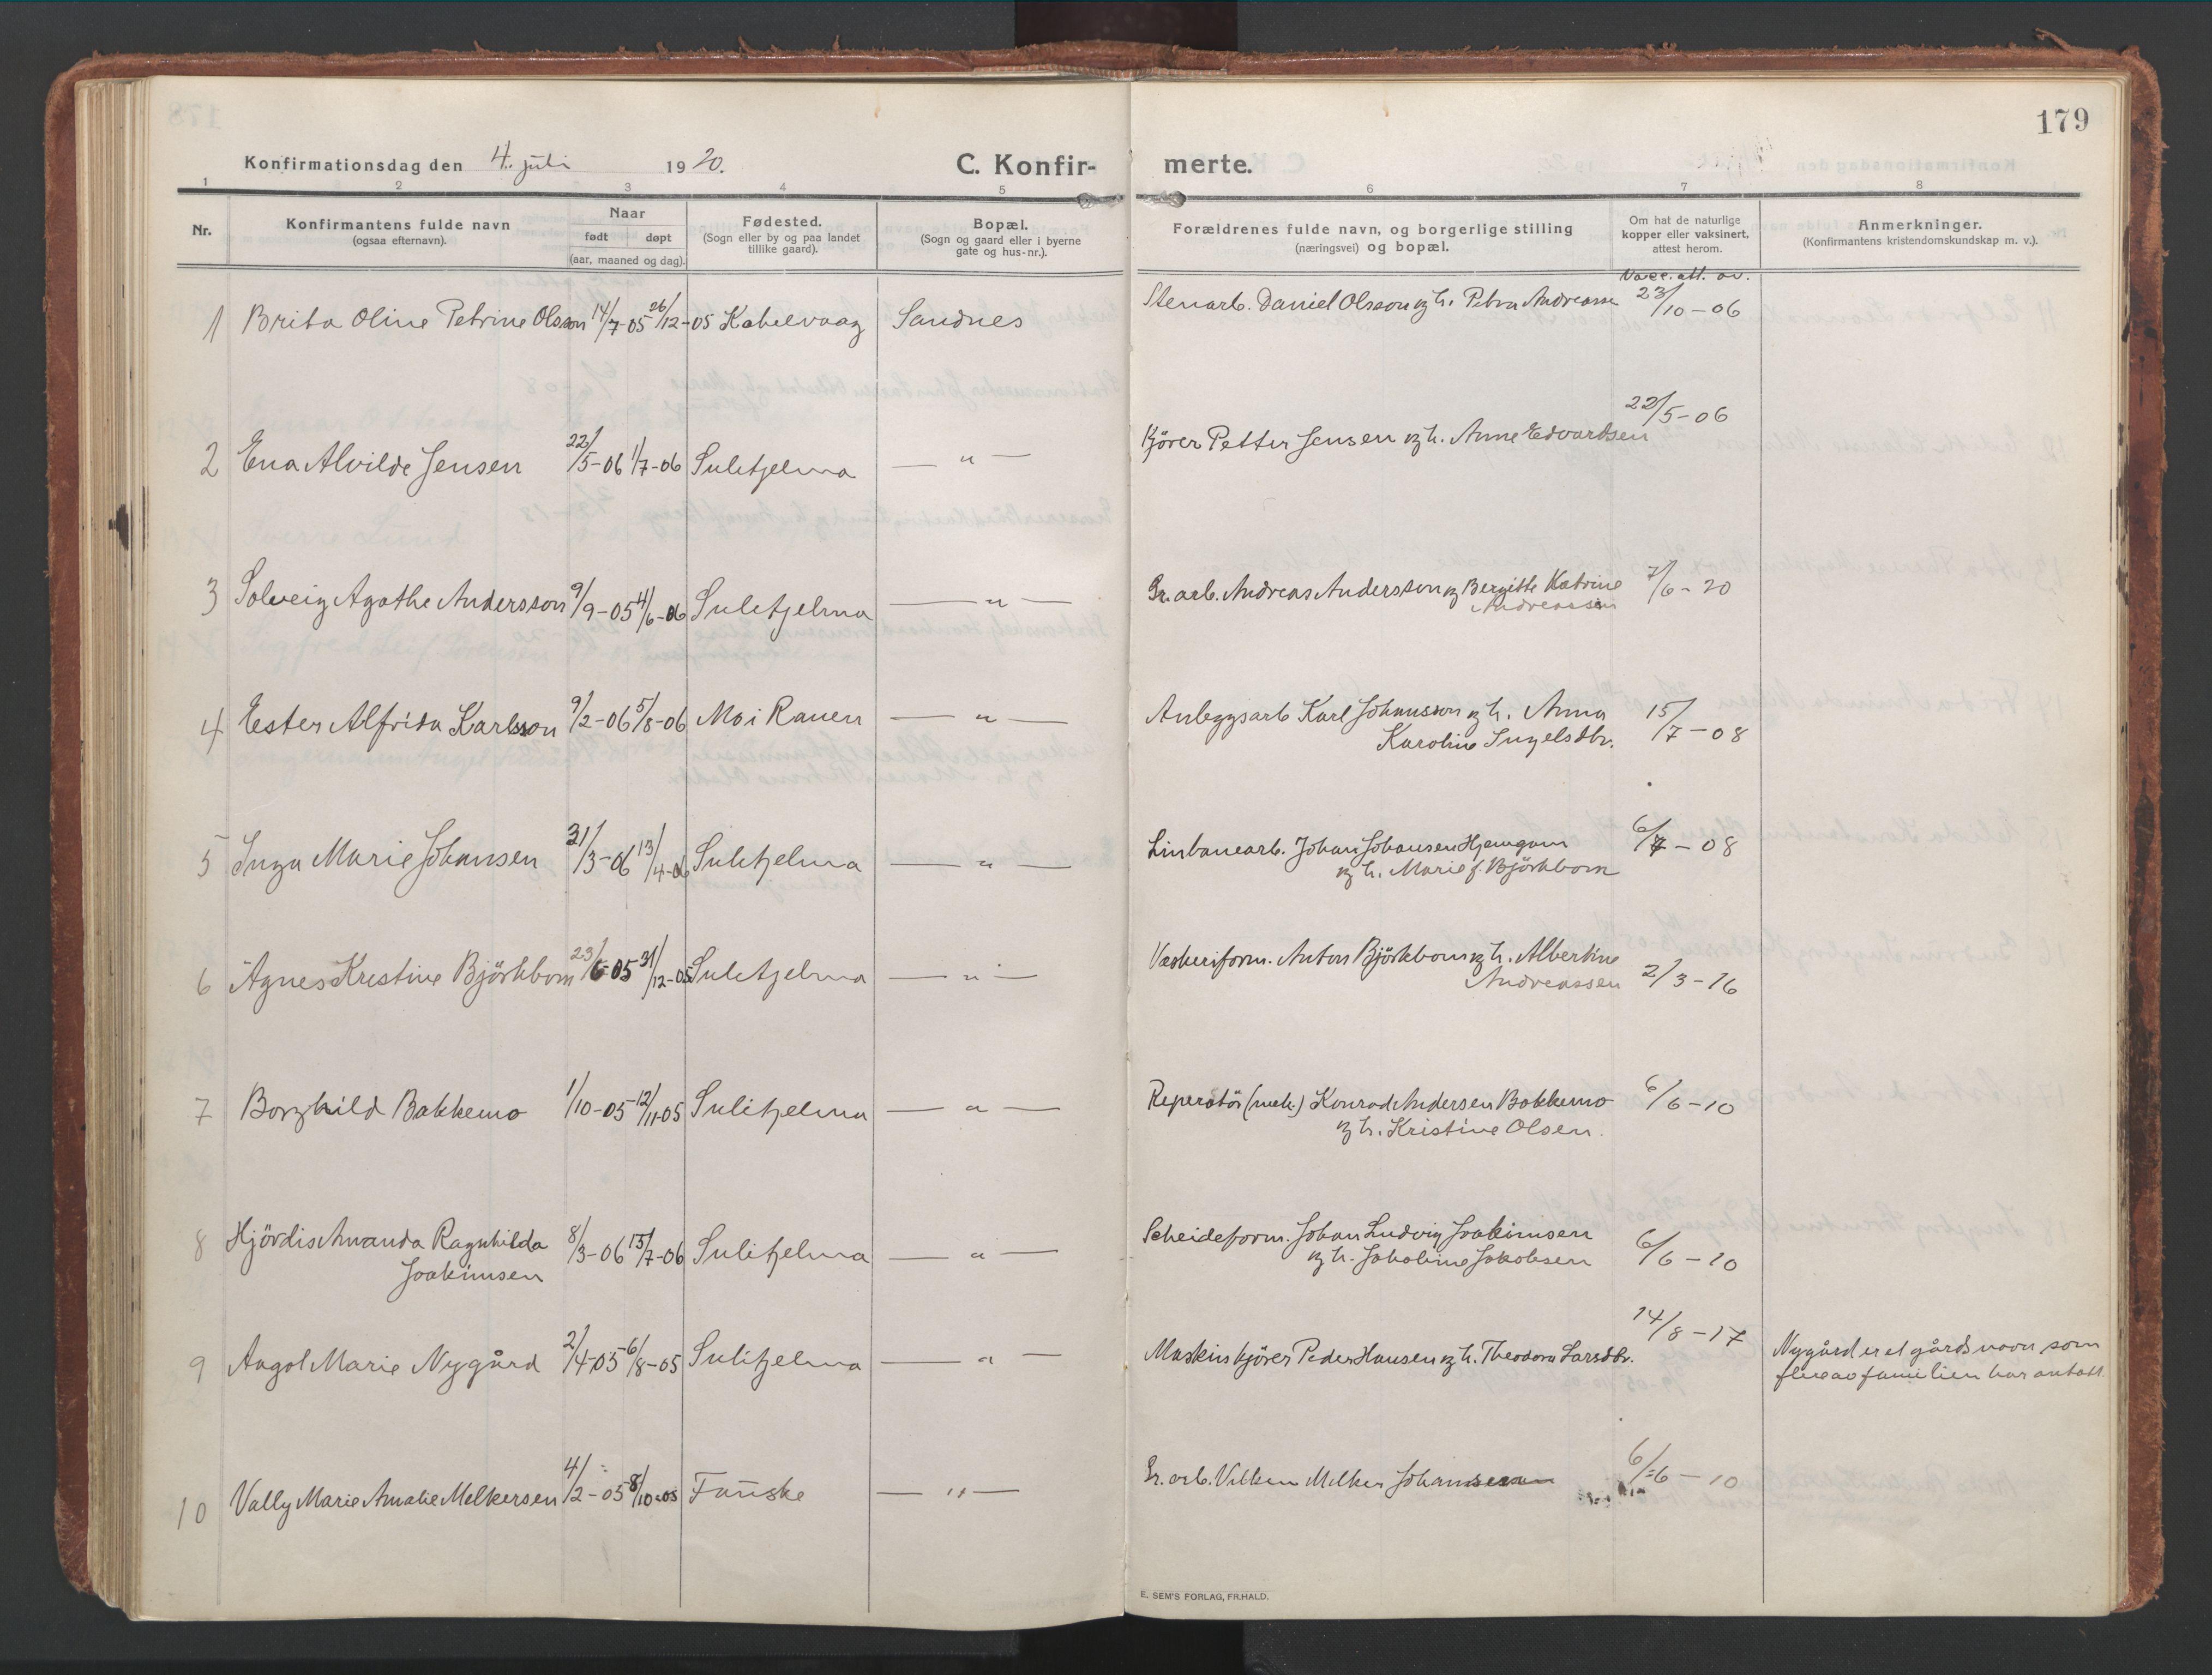 179
Konfirmationsdag den 4. juli 1920.
C. Konfirmerte.
1 2 3 4 5 6 7 8
Nr.
Konfirmantens fulde navn
(ogsaa efternavn).
Naar
født døpt
(aar, maaned og dag).
Fødested.
(Sogn eller by og paa landet
tillike gaard).
Bopæl.
(Sogn og gaard eller i byerne
gate og hus-nr.).
Forældrenes fulde navn, og borgerlige stilling
(næringsvei) og bopæl.
Om hat de naturlige
kopper eller vaksinert,
attest herom.
Anmerkninger.
(Konfirmantens kristendomskundskap m. v.).
Vacc. att. av.
1 Brita Oline Petrine Olsson 14/7-05 26/12-05 Kabelvaag Sandnes Stenarb. Daniel Olsson og h. Petra Andreassen 23/10-06
2 Ena Alvilde Jensen 22/5-06 1/7-06 Sulitjelma — " — Kjörer Petter Jensen og h. Anne Edvardsen 22/5-06
3 Solveig Agathe Andersson 9/9-05 4/6-06 Sulitjelma — " — Gr. arb. Andreas Andersson og Bergitte Katrine 7/6-20
Andreassen
4 Ester Alfrida Karlsson 9/2-06 5/8-06 Mo i Ranen — " — Anleggsarb Karl Johansson og h. Anna 15/7-08
Karoline Ingelsdtr.
5 Inga Marie Johansen 31/3-06 13/4-06 Sulitjelma — " — Linbanearb. Johan Johansen Hjemgam 6/7-08
og h. Marie f. Björkbom
6 Agnes Kristine Björkbom 23/6-05 31/12-05 Sulitjelma — " — Vaskeriform. Anton Björkbom og h. Albertine
Andreassen 2/3-16
7 Borghild Bakkemo 1/10-05 12/11-05 Sulitjelma — " — Reperatör (mek.) Konrad Andersen Bakkemo 6/6-10
og h. Kristine Olsen.
8 Hjördis Amanda Ragnhilda 8/3-06 15/7-06 Sulitjelma — " — Scheideform. Johan Ludvig Joakimsen
Joakimsen og h. Jakobine Jakobsen 6/6-10
9 Aagot Marie Nygård 2/4-05 6/8-05 Sulitjelma — " — Maskinkjörer Peder Hansen og h. Theodora Larsdtr. 14/8-17 Nygård er et gårdsnavn som
flere av familien har antatt
10 Vally Marie Amalie Melkersen 4/2-05 8/10-05 Fauske — " — Gr. arb. Vilken Melker Johansen 6/6-10
E. SEM'S FORLAG, FR.HALD.